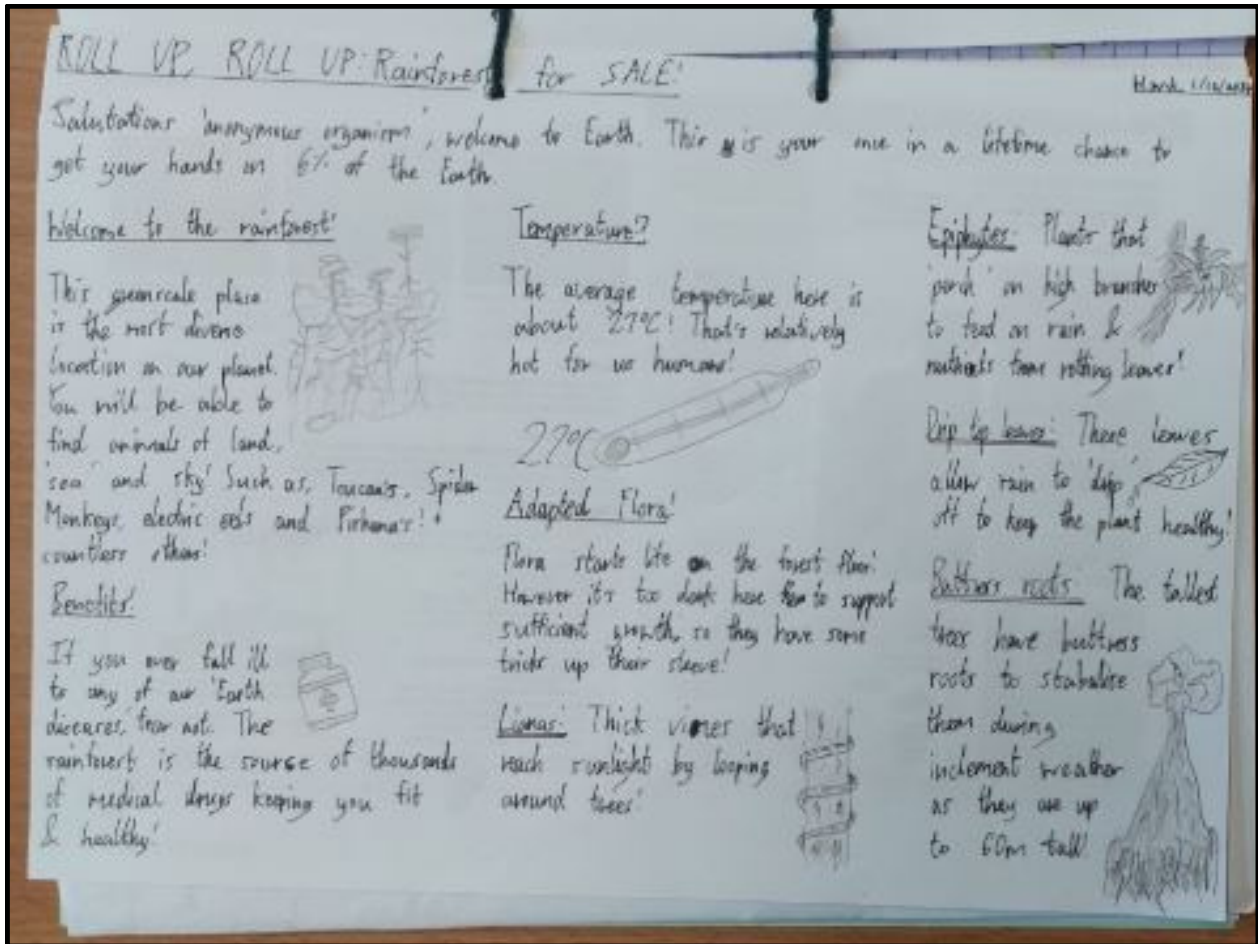 ROLL UP, ROLL UP: Rainforest for SALE!
Salutations 'anonymous organism', welcome to Earth. This is your one in a lifetime chance to
get your hands on 6% of the Earth.
Welcome to the rainforest!
This place
is the most diverse
location on our planet.
You will be able to
find animals of land,
'sea' and sky! Such as, Toucan's, Spider
Monkeys, electric eels and Pirhana's! +
countless others!
Benefits!
If you ever fall ill
to any of our Earth
diseases, fear not. The
rainforest is the sourse of thousands
of medical drugs keeping you fit
& healthy!
Temperature?
The average temperature here is
about 27°C! That's relatively
hot for us humans!
27°C
Adapted Flora!
Flora starts life on the forest floor!
However it's too dark here to support
sufficient growth, so they have some
tricks up their sleeve!
Lianas: Thick vines that
reach sunlight by looping
around trees!
Epiphytes: Plants that
'perch' on high branches
to feed on rain &
nutrients from rotting leaves!
Drip tip leaves: These leaves
allow rain to 'drip'
off to keep the plant healthy!
Buttress roots: The tallest
trees have buttress
roots to stabalise
them during
inclement weather
as they are up
to 60m tall!